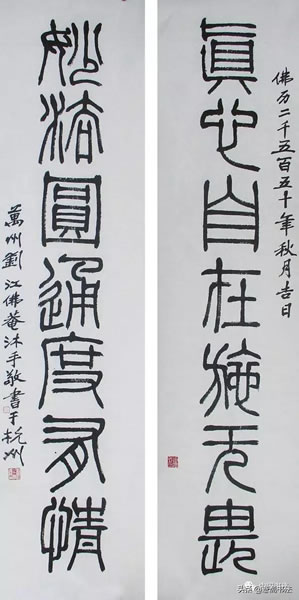 佛历二千五百五十年秋月吉日
眞心自在施无畏
妙法圓通度有情
萬州劉江佛菴沐手敬書于杭州
头条 书法